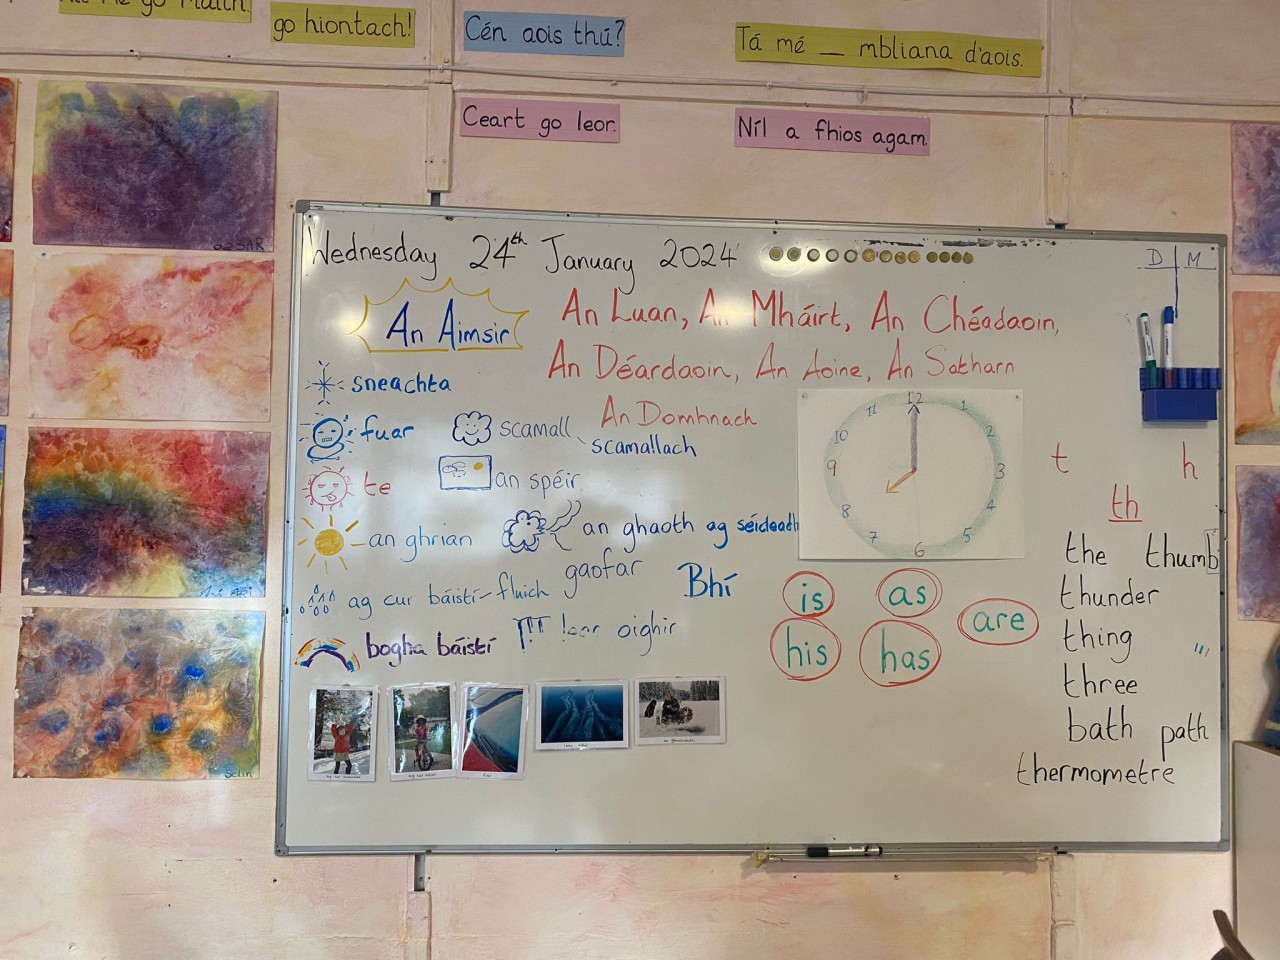 go maith.
go hiontach!
Cén aois thú?
Tá mé __ mbliana d'aois.
Ceart go leor.
Níl a fhios agam.
Wednesday 24th January 2024
D M
An Aimsir
An Luan, An Mháirt, An Chéadaoin,
An Déardaoin, An Aoine, An Satharn
An Domhnach
sneachta
fuar
scamall, scamallach
te
an spéir
an ghrian
an ghaoth ag séideadh
gaofar
ag cur báistí-fluich
Bhí
bogha báistí
leac oighir
12
1
2
3
4
5
6
7
8
9
10
11
is
as
are
his
has
t h
th
the thumb
thunder
thing
three
bath path
thermometre
Selin